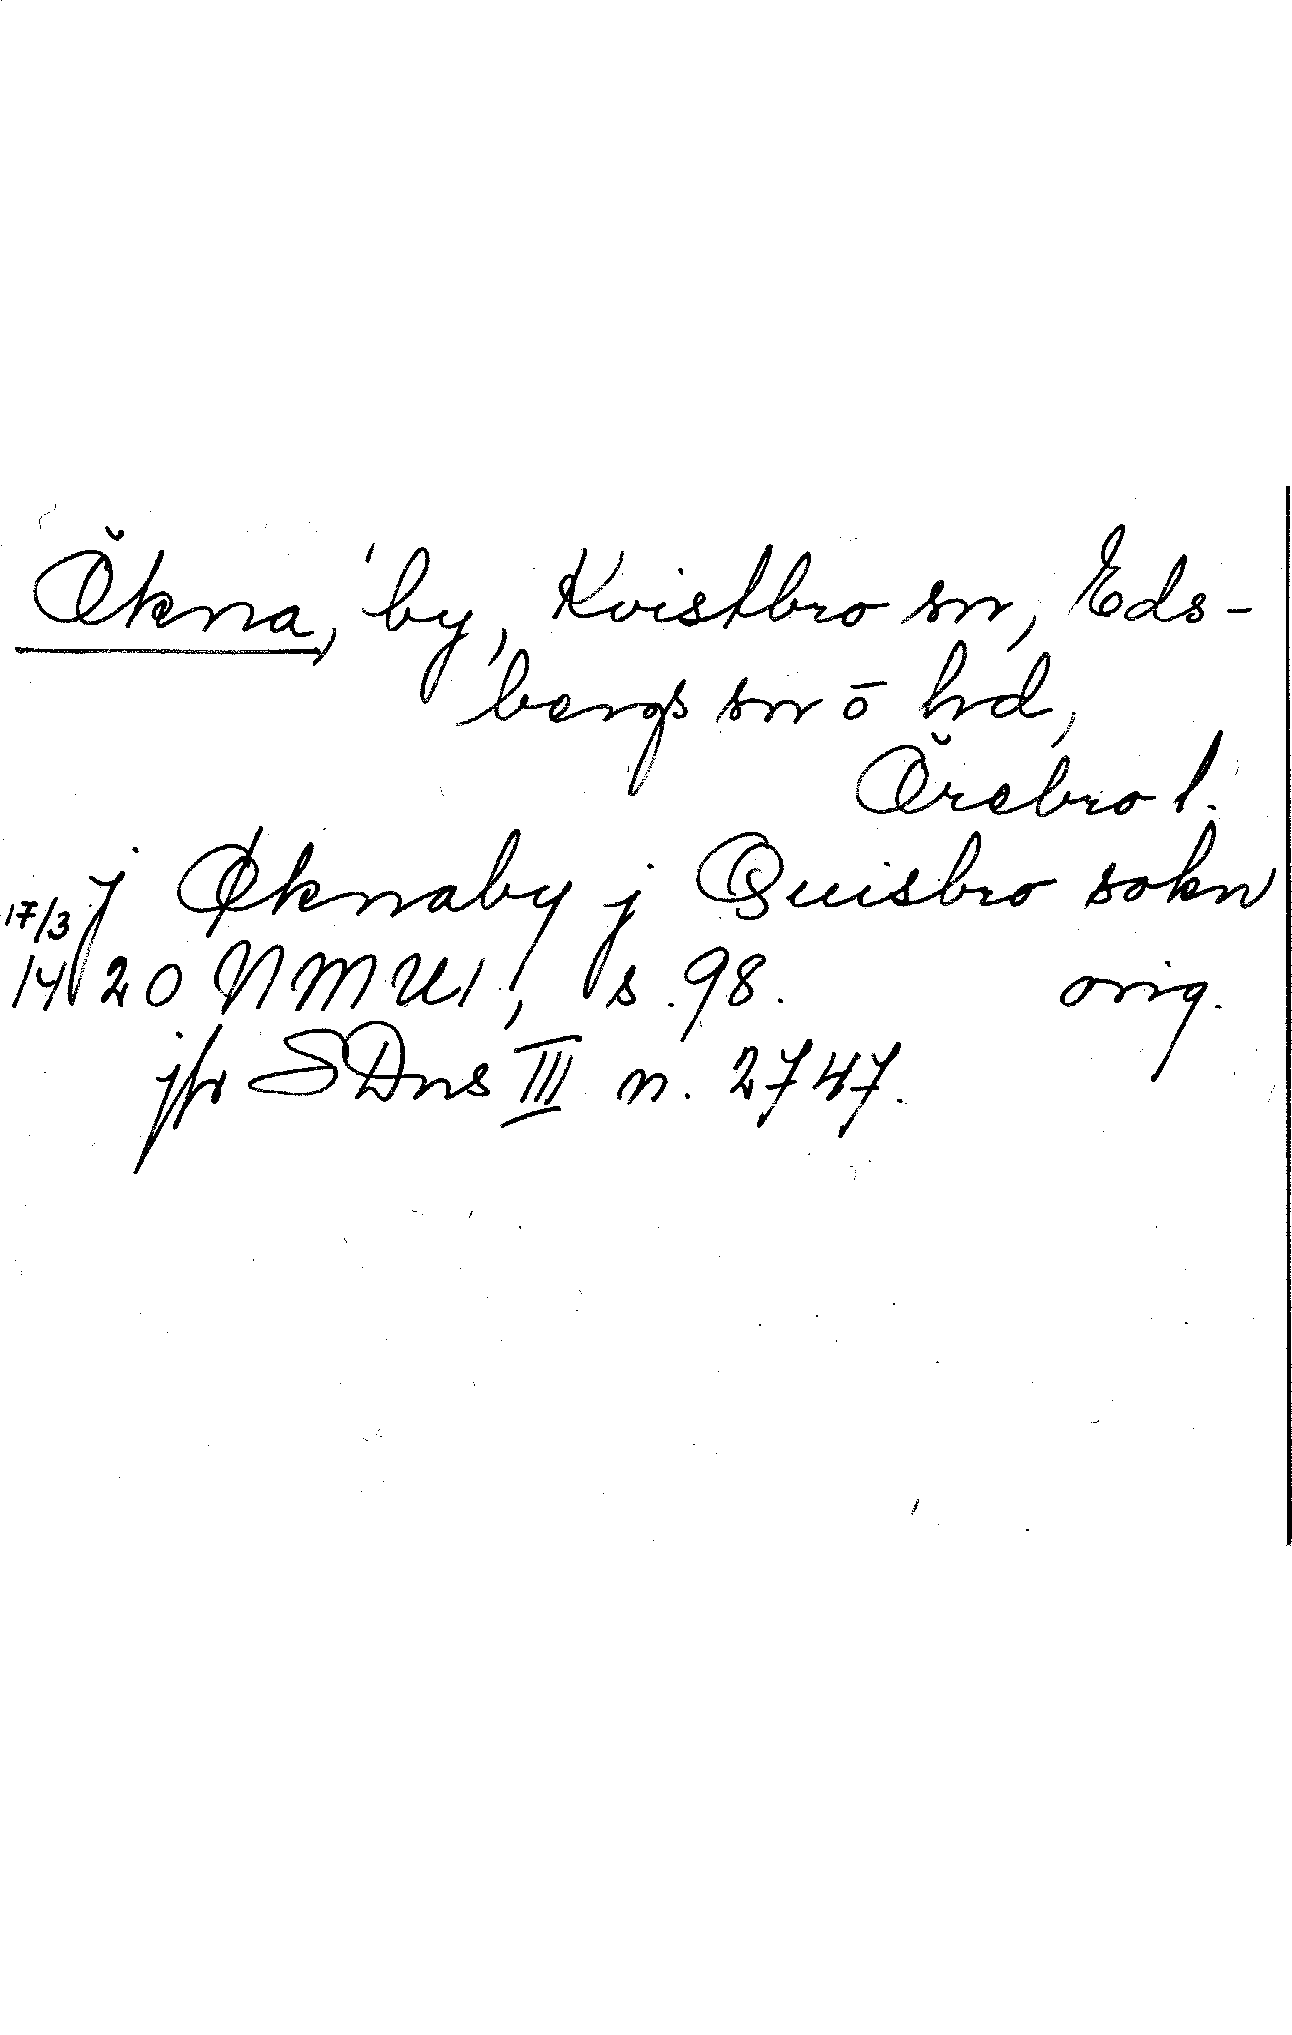 Ökna, by, Kvistbro sn, Eds-
bergs sn o hd,
Örebro l.
j Øknaby j Quisbro sokn
17/3 1420 NMU1, s. 98. orig.
jfr SDns III n. 2747.